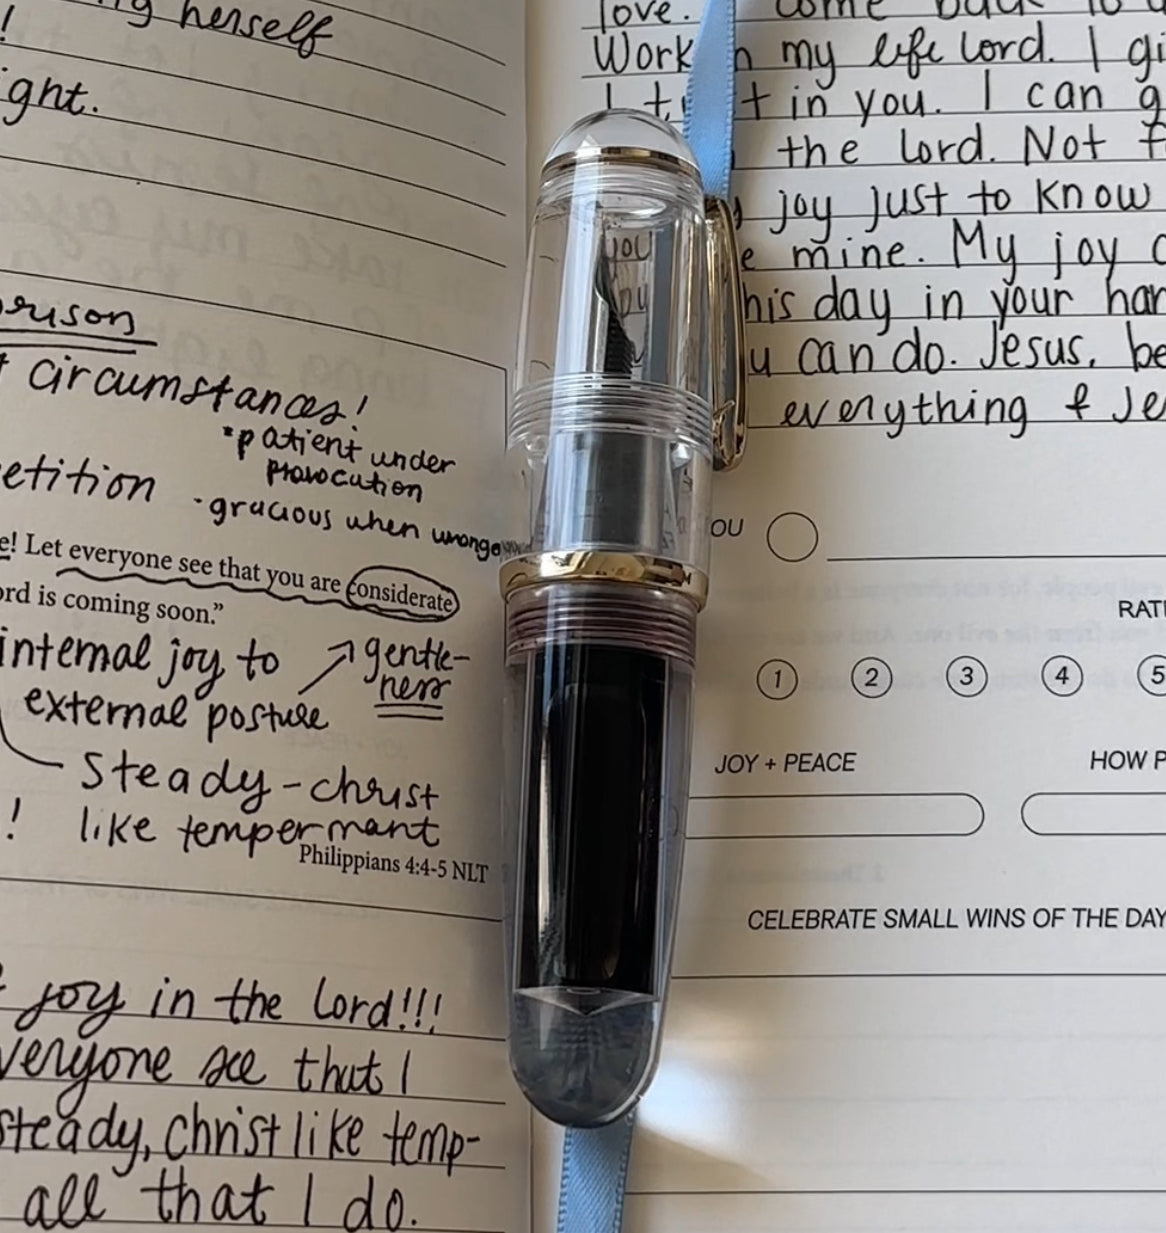 herself
!
ight.
orison
circumstances!
• patient under
provocation
etition
• gracious when wronge
e! Let everyone see that you are considerate
ord is coming soon."
internal joy to
gentle-
ness
external posture
Steady-christ
! like tempermant
Philippians 4:4-5 NLT
joy in the Lord!!!
veryone see that I
steady, Christ like temp-
all that I do.
love. come back to
Work n my life Lord. I gi
I t t in you. I can g
the Lord. Not
joy just to know
e mine. My joy
his day in your han
u can do. Jesus, be
everything & Je
you
OU
RATI
1 2 3 4 5
JOY + PEACE
HOW P
CELEBRATE SMALL WINS OF THE DAY